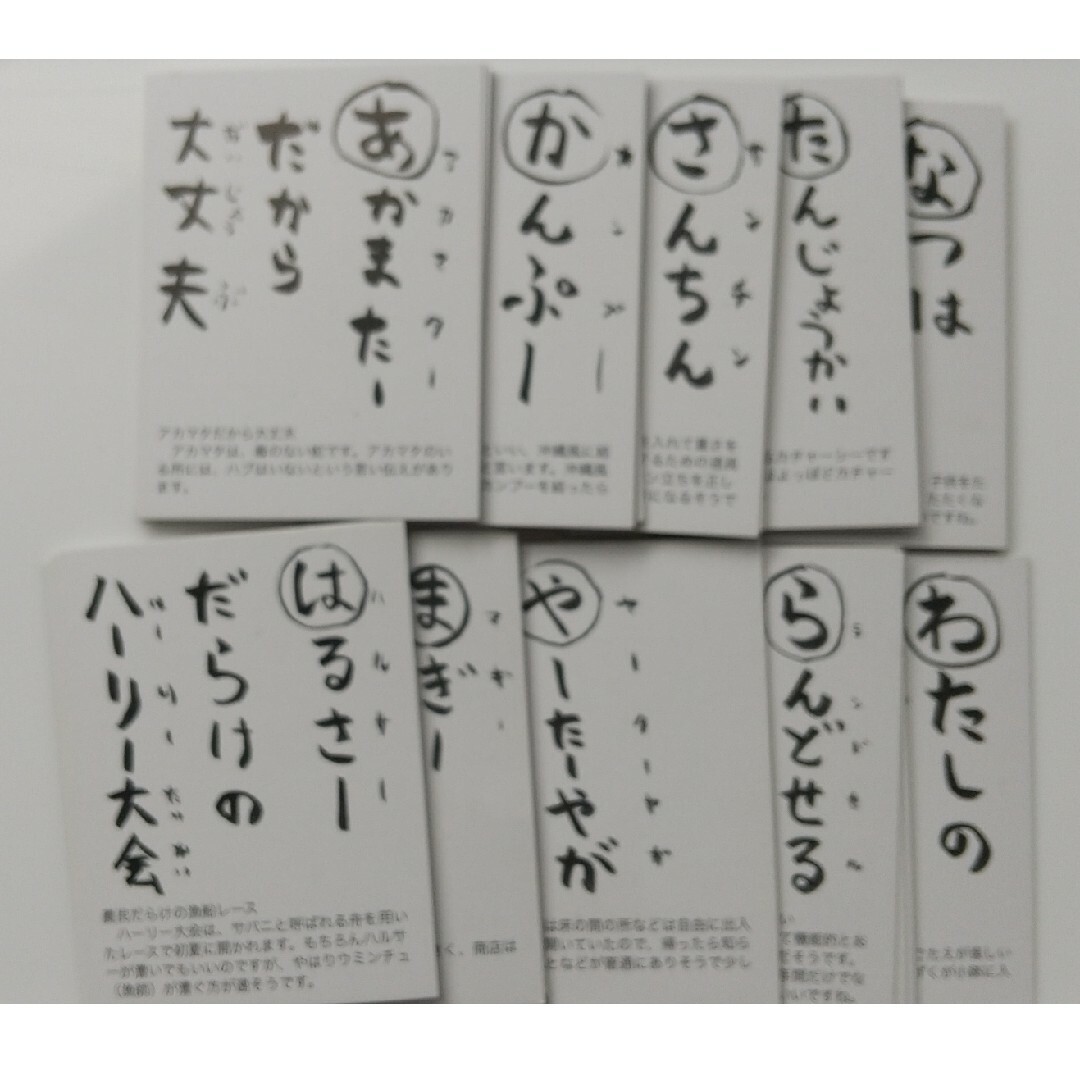 あかまたー
アカマタァー
だから
大丈夫
だいじょうぶ
アカマタだから大丈夫
アカマタは、毒のない蛇です。アカマタのい
る所には、ハブはいないという言い伝えがあり
ます。
かんぷー
カンプー
といい、沖縄風に結
と言います。沖縄風
カンプーを結ったら
さんちん
サンチン
を入れて重さを
するための道具
ン立ちを正し
になるそうで
たんじょうかい
カチャーシーです
よっぽどカチャー
なつは
子供をた
たたくな
ですね。
はるさー
ハルサー
だらけの
ハーリー大会
はーりーたいかい
農民だらけの漁船レース
ハーリー大会は、サバニと呼ばれる舟を用い
たレースで初夏に開かれます。もちろんハルサ
ーが漕いでもいいのですが、やはりウミンチュ
（漁師）が漕ぐ方が速そうです。
まぎー
マギー
く、商店は
やーたーやが
ヤーターヤガ
は床の間の所などは自由に出入
開いていたので、帰ったら知ら
となどが普通にありそうで少し
らんどせる
ランドセル
い
て機能的とお
だそうです。
年間だけでな
いいですね。
わたしの
ごたえが楽しい
ずくが小鉢に入